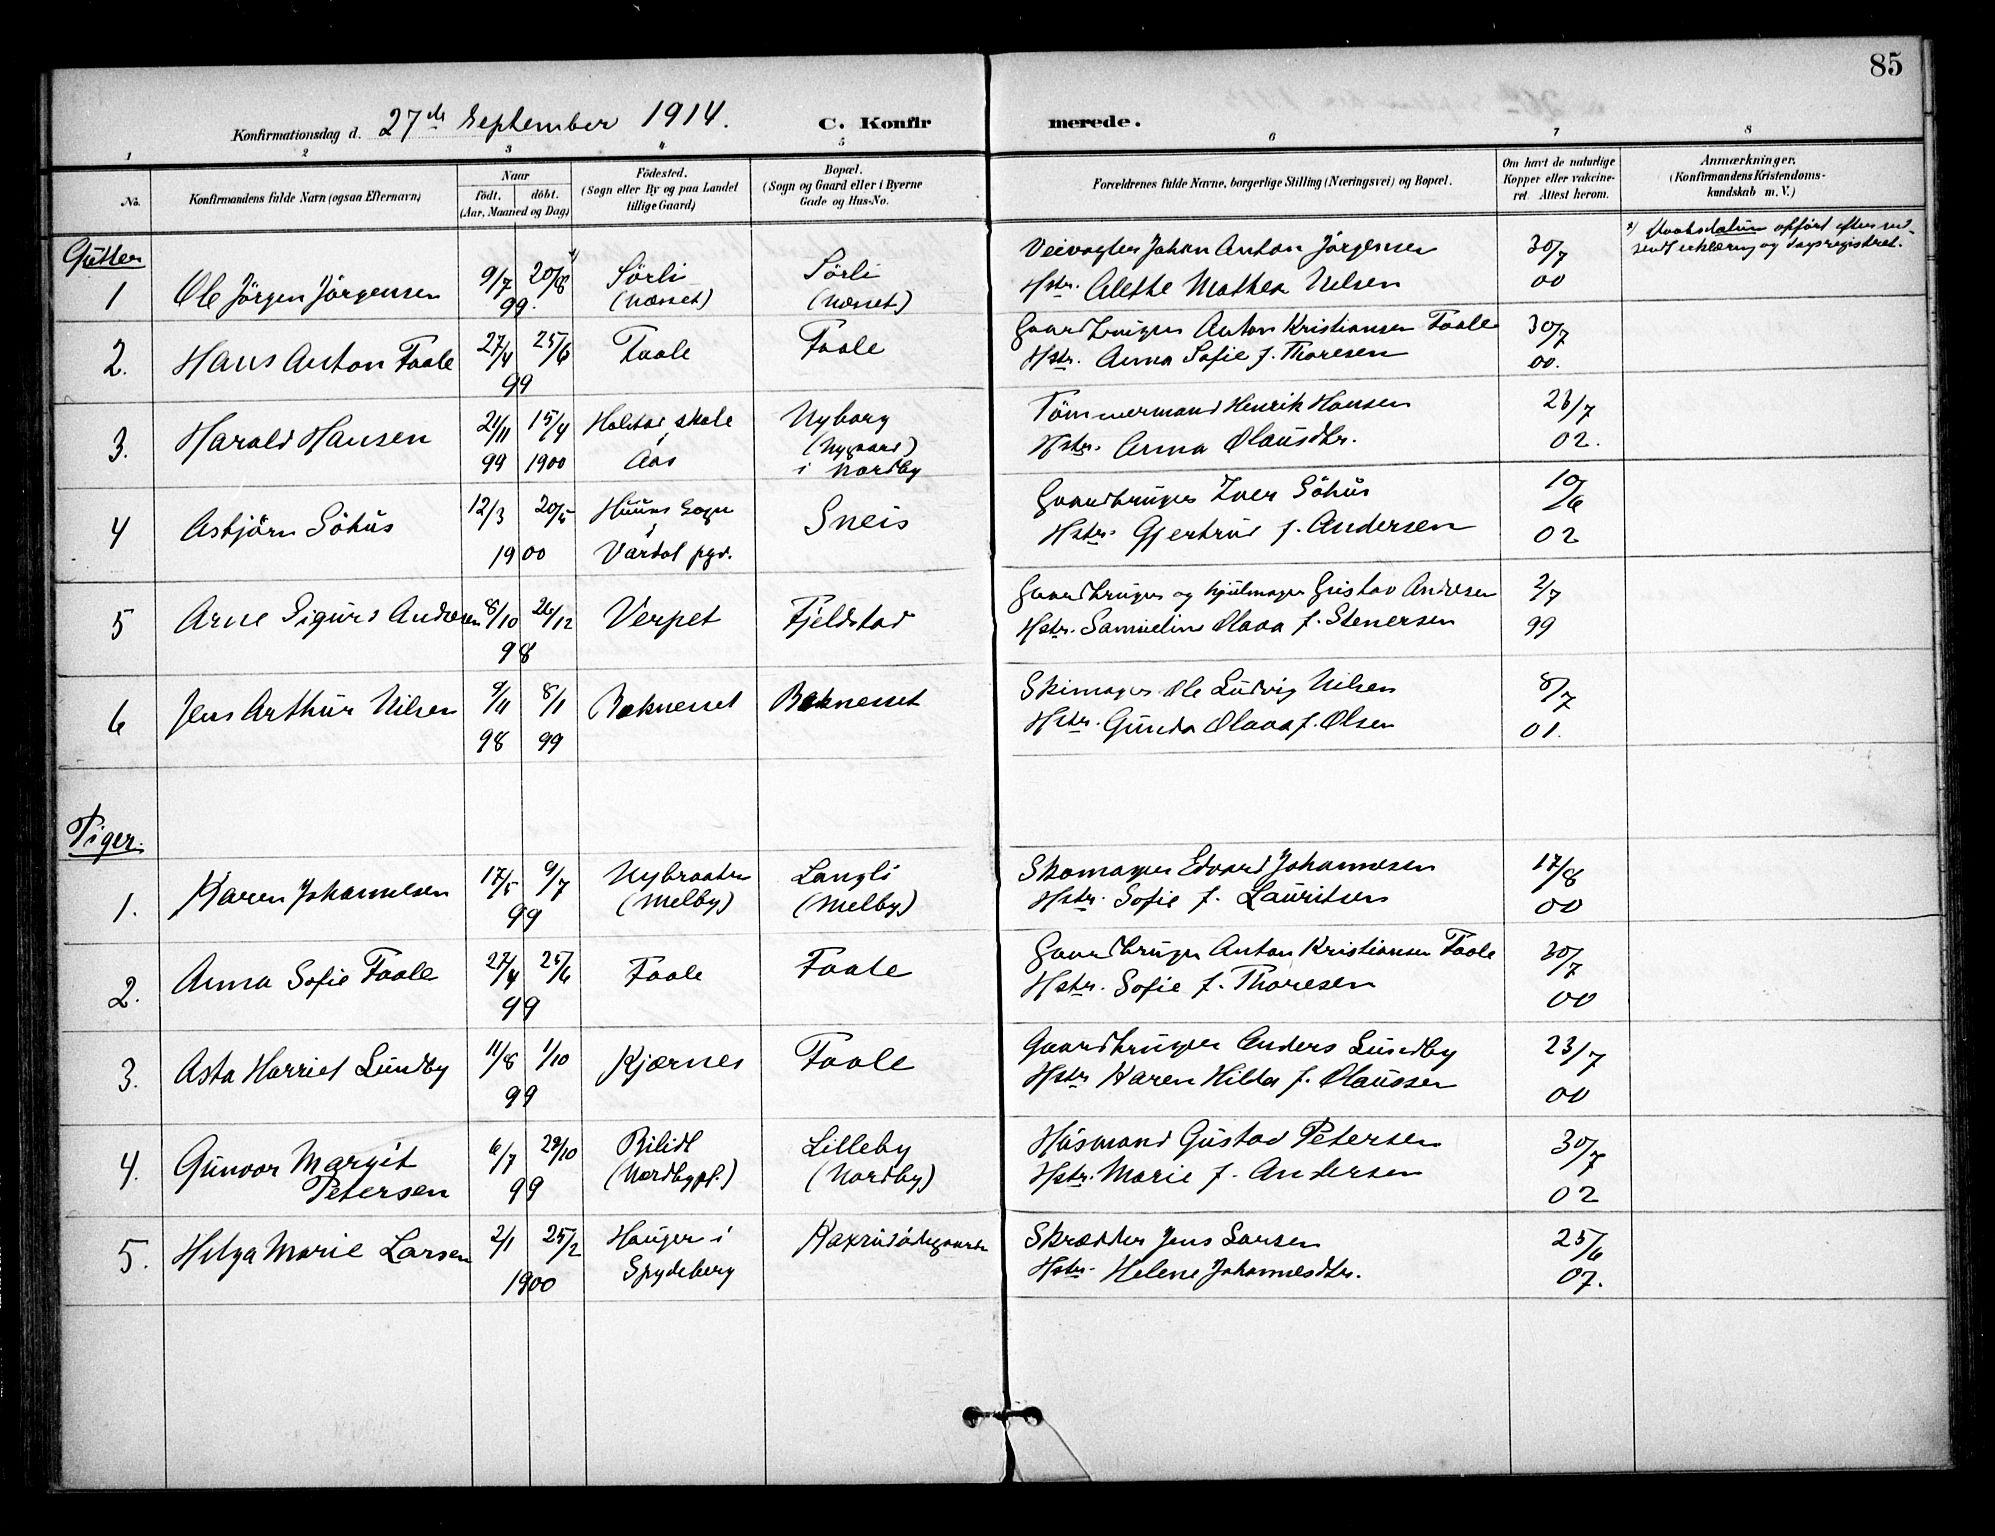 85
Konfirmationsdag d. 27de September 1914. C. Konfirmerede.
1 2 3 4 5 6 7 8
No. Konfirmandens fulde Navn (ogsaa Efternavn) Naar födt. döbt. (Aar, Maaned og Dag) Födested. (Sogn eller By og paa Landet tillige Gaard) Bopæl. (Sogn og Gaard eller i Byerne Gade og Hus-No. Forældrenes fulde Navne, borgerlige Stilling (Næringsvei) og Bopæl. Om havt de naturlige Kopper eller vakcineret. Attest herom. Anmærkninger, (Konfirmandens Kristendomskundskab m. V.)
Gutter
1 Ole Jörgen Jörgensen 9/7 20/8 99. Sørli (Næsset) Sørli (Næsset) Veivogter Johan Anton Jörgensen 30/7 00
Hstr. Alethe Mathea Nilsen
Daabsdatum opført efter
erklæring og dagsregistret.
2. Hans Anton Faale 27/4 25/6 99 Faale Faale Gaardbruger Anton Kristiansen Faale 30/7 00.
Hstr. Anna Sofie f. Thoresen
3. Harald Hansen 21/11 99 15/4 1900 Holstad skole i Aas Nyborg (Nygaard) i Nordby Tömmermand Henrik Hansen 23/7 02.
Hstr. Anna Olausdtr.
4 Asbjörn Söhus 12/3 20/5 1900 Huuns Sogn i Vardal pgd. Sneis Gaardbruger Iver Söhus 10/6 02
Hstr. Gjertrud f. Andersen
5 Arne Sigurd Andersen 8/10 26/12 98 Verpet Fjeldstad Gaardbruger og hjulmager Gustav Andersen 2/7 99
Hstr. Samueline Olava f. Stenersen
6 Jens Arthur Nilsen 9/11 98 8/1 99 Boknesset Boknesset Skimager Ole Ludvig Nilsen 8/7 01.
Hstr. Gunda Olava f. Olsen
Piger.
1. Karen Johannesen 17/5 9/7 99 Nybraaten (Melby) Langli (Melby) Skomager Edvard Johannesen 17/8 00
Hstr. Sofie f. Lauritsen
2. Anna Sofie Faale 27/4 25/6 99 Faale Faale Gaardbruger Anton Kristiansen Faale 30/7 00
Hstr. Sofie f. Thoresen
3. Asta Harriet Lundby 11/8 1/10 99 Kjærnes Faale Gaardbruger Anders Lundby 23/7 00
Hstr Karen Hilda f. Olaussen
4. Gunvor Margit Petersen 6/7 29/10 99 Bilidt (Nordbypl.) Lilleby (Nordby) Husmand Gustav Petersen 30/7 02
Hstr. Marie f. Andersen
5. Helga Marie Larsen 2/1 25/2 1900 Hauger i Spydeberg Skrædder Jens Larsen 25/6 07.
Hstr. Helene Johannesdtr.